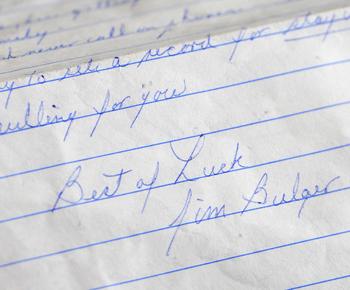 never call on phone
y to set a record for stay
pulling for you
Best of Luck
Jim Bulger